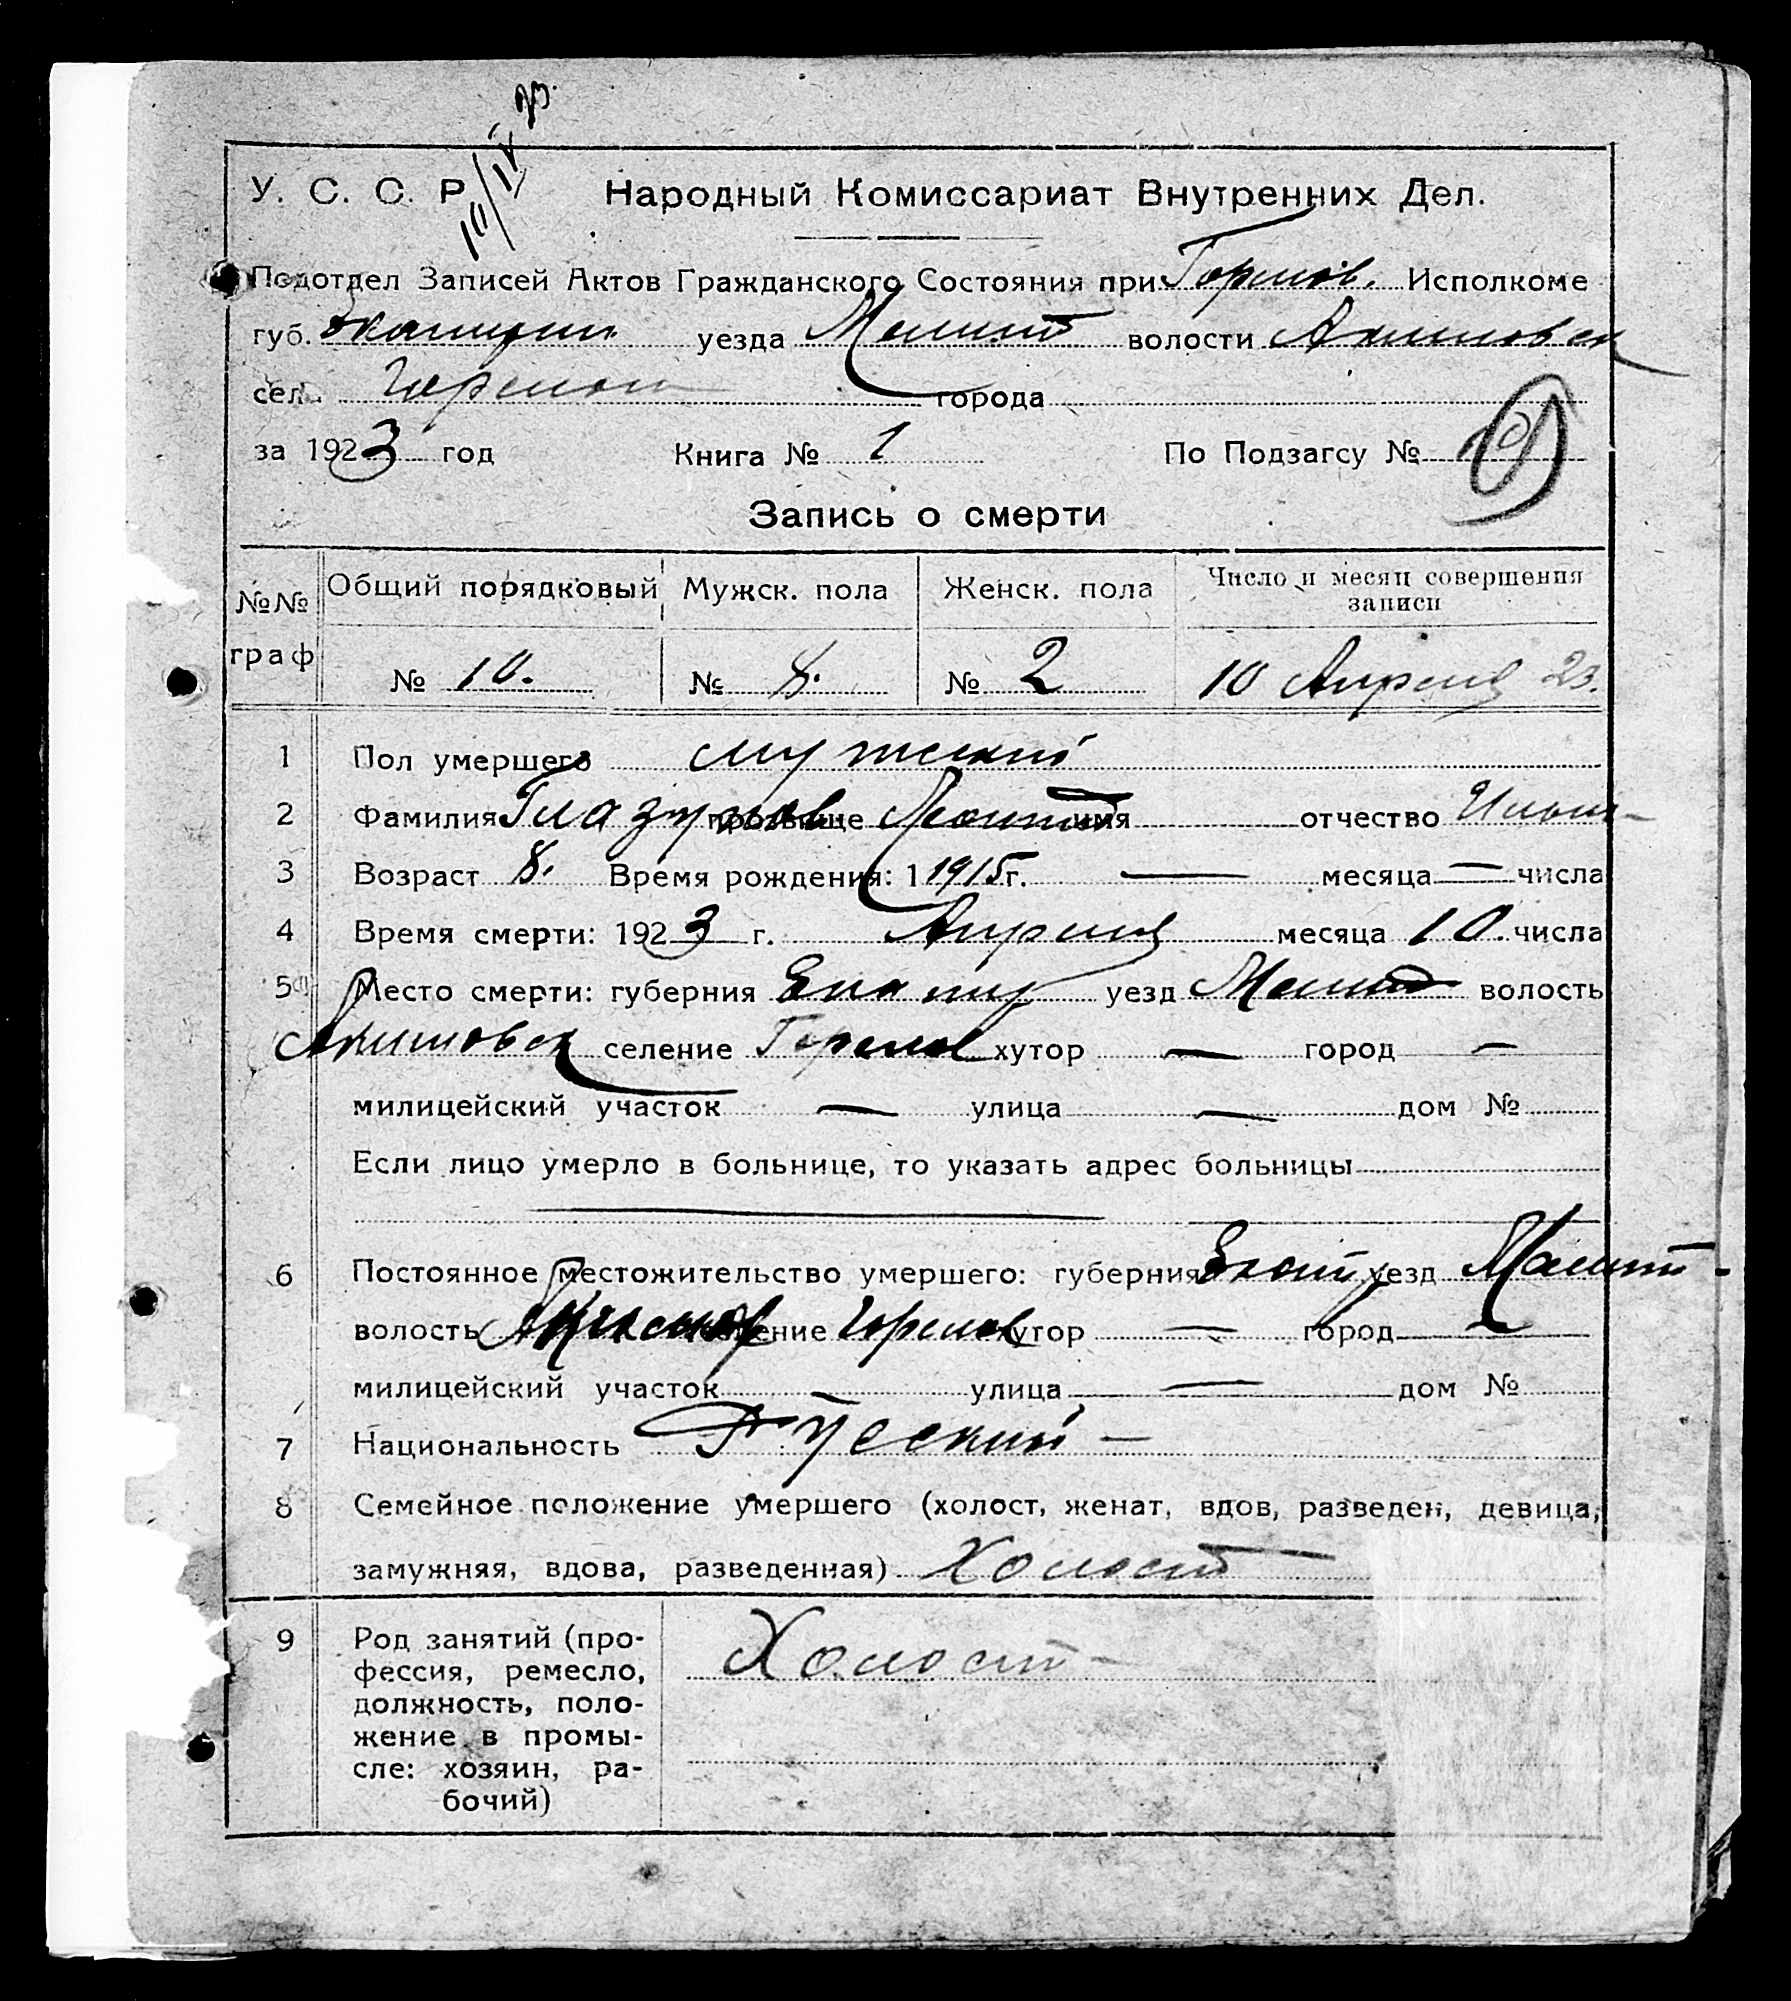 10/IV 23.
У. С. С. Р. Народный Комиссариат Внутренних Дел.
Подотдел Записей Актов Гражданского Состояния при Горелов. Исполкоме
губ. уезда Мелит волости Акимовск
сел. города
за 1923 год Книга № 1 По Подзагсу № 10
Запись о смерти
№№ граф Общий порядковый Мужск. пола Женск. пола Число и месяц совершения записи
№ 10. № 8. № 2 10 Апреля 23.
1 Пол умершего мужский
2 Фамилия Глазунов прозвище имя отчество
3 Возраст 8. Время рождения: 1 1915 г. — месяца — числа
4 Время смерти: 1923 г. Апреля месяца 10. числа
5 Место смерти: губерния Екатер уезд Мелит волость
Акимовск селение Горелов хутор — город —
милицейский участок — улица — дом №
Если лицо умерло в больнице, то указать адрес больницы
6 Постоянное местожительство умершего: губерния Екат уезд Мелит
волость Акимов селение Горелов хутор — город —
милицейский участок — улица — дом №
7 Национальность Русский —
8 Семейное положение умершего (холост, женат, вдов, разведен, девица,
замужняя, вдова, разведенная) Холост
9 Род занятий (про-
фессия, ремесло,
должность, поло-
жение в промы-
сле: хозяин, ра-
бочий)
Холост —